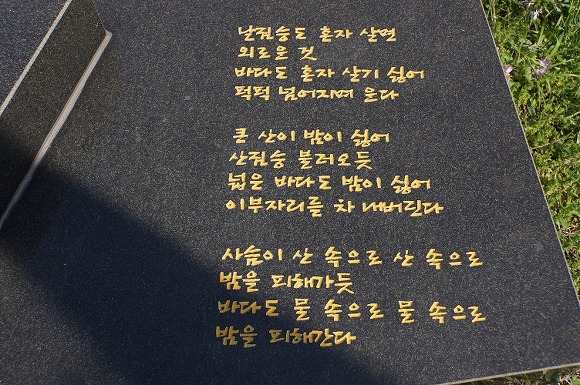 날짐승도 혼자 살면
외로운 것
바다도 혼자 살기 싫어
퍽퍽 넘어지며 운다
큰 산이 밤이 싫어
산짐승 불러오듯
넓은 바다도 밤이 싫어
이부자리를 차 내버린다
사슴이 산 속으로 산 속으로
밤을 피해가듯
바다도 물 속으로 물 속으로
밤을 피해간다